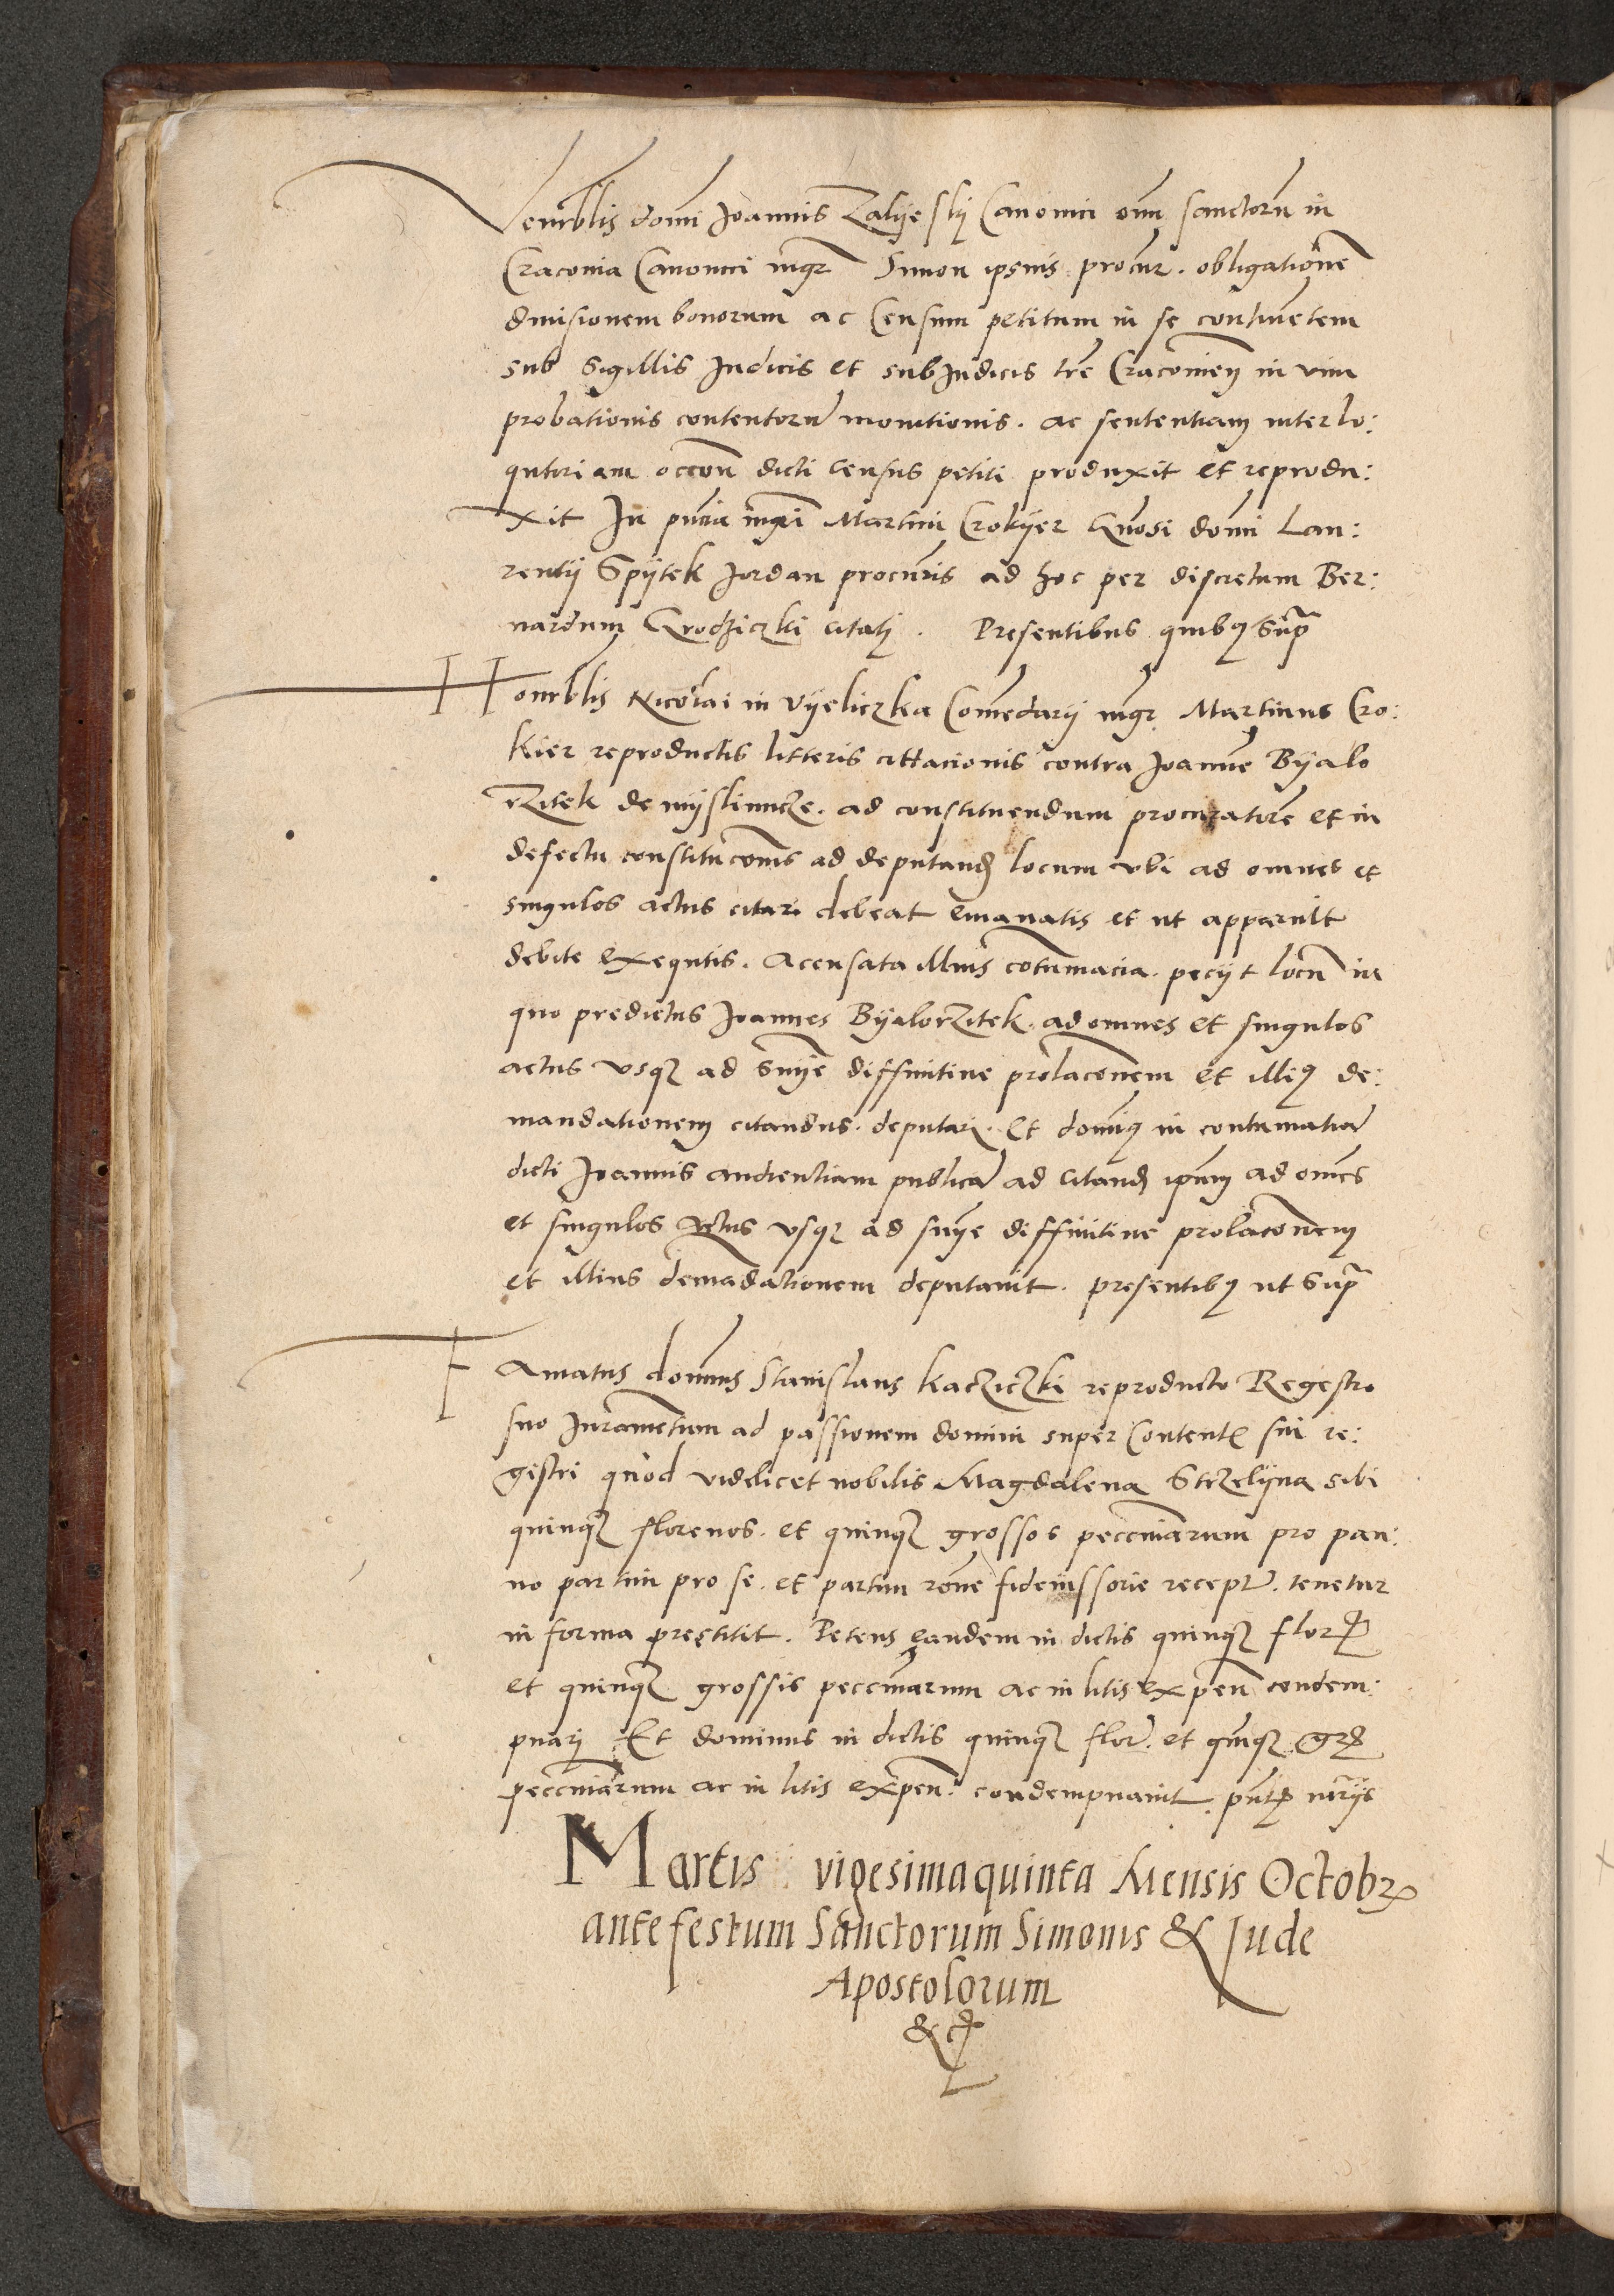 Venerblis domi Joannis Zalyeskij Canonici omn sanctoru in
Craconia Canonici mgr Simon ipsius procur. obligatione
divisionem bonorum ac Censum petitum in se continetem
sub Sigillis Judicis et subJudicis tre Craconien in vim
probationis contentoru monitionis. ac sententiam interlo:
qutoriam occon dicti census petiti produxit et reprodu:
xit In pntia mgri Martini Crokyer Gnosi domi Lau:
rentij Spytek Jordan procuris ad hoc per discretum Ber:
nardum Grodziczki citati. Presentibus quibus Supra
Honrblis Nicolai in Vyeliczka Comedarij mgr Martinus Cro:
kier reproductis litteris cittacionis contra Joanne Byalo
rzitek de myslimicze. ad constituendum procuratore et in
defectu constitucomis ad deputand locum vbi ad omnes et
singulos actus citari debeat emanatis et ut apparuit
debite exequtis. Acensata illius cotumacia. peciit locu in
quo predictus Joannes Byalorzitek. ad omnes et singulos
actus vsqz ad Snye diffinitive prolaconem et illius de:
mandationem citandus. deputari. Et domius in contumatia
dicti Joannis audientiam publica ad citand ipum ad omes
et singulos actus vsqz ad snye diffinitive prolaconem
et illius demadationem deputavit. presentibus ut Supra
Famatus domius Stanislaus Kacziczki reproducto Regestro
suo Juramentum ad passionem domini super Content sui re:
gistri quod videlicet nobilis Magdalena Strzelyna sibi
quinqz florenos. et quinqz grossos pecuniarum pro pan:
no partim pro se. et partim rone fideiussorie recept. tenetur
in forma prestitit. Petens eandem in dictis quinqz flor
et quinqz grossis pecuniarum ac in litis expen condem:
pnari Et dominus in dictis quinqz flor. et quinqz gr
pecuniarum ac in litis expen. condempnavit. pntibus
Martis vigesimaquinta Mensis Octobr
ante festum Sanctorum Simonis & Jude
Apostolorum
& c